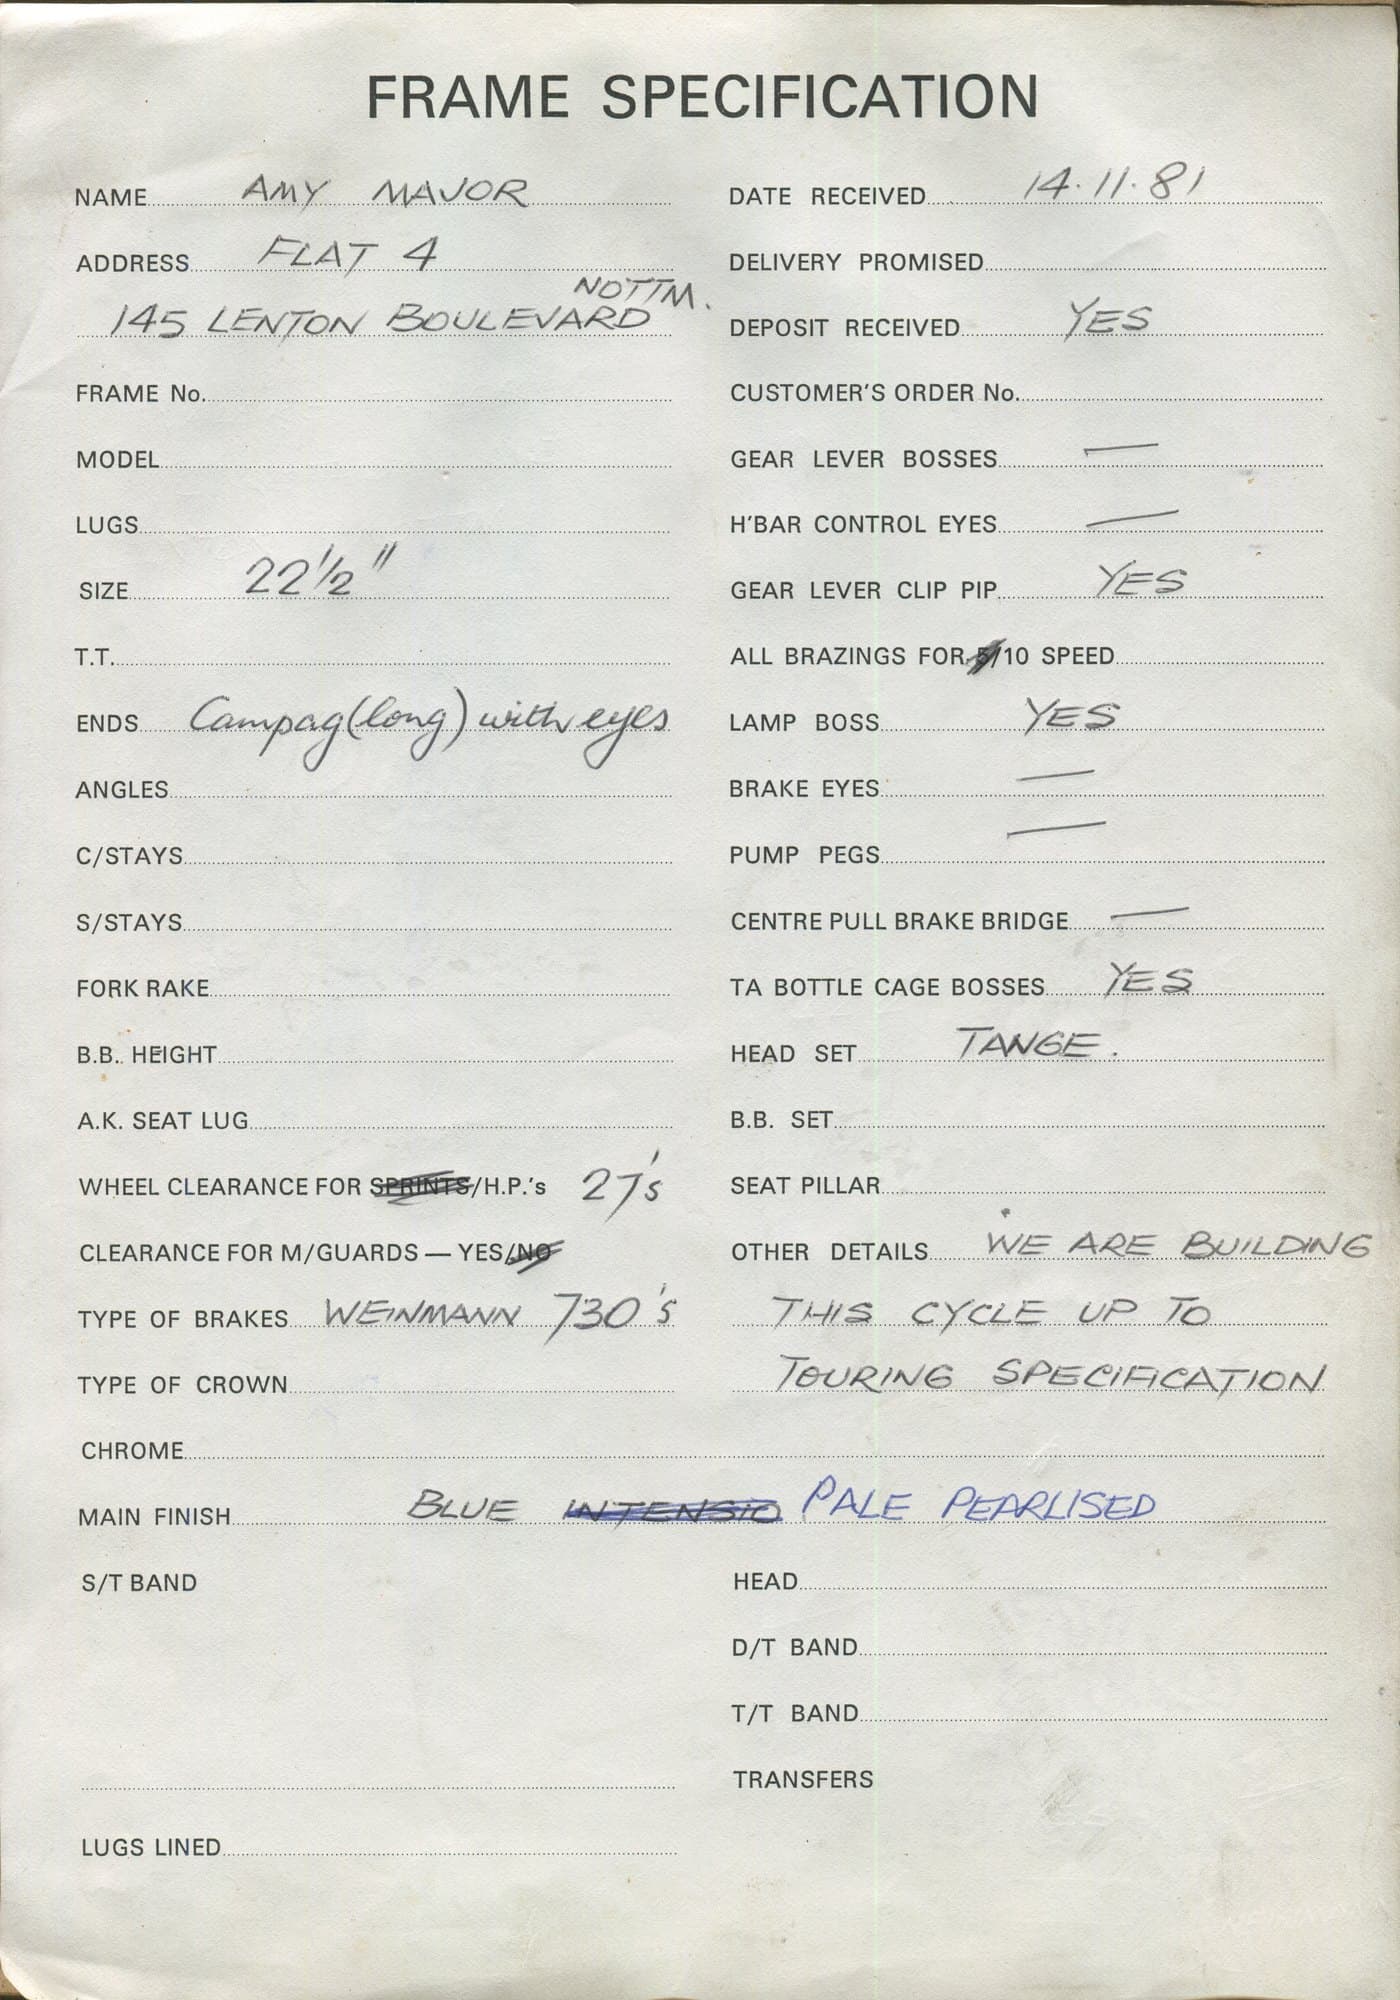 FRAME SPECIFICATION
NAME AMY MAJOR
ADDRESS FLAT 4
NOTTM.
145 LENTON BOULEVARD
FRAME No.
MODEL
LUGS
SIZE 22 1/2"
T.T.
ENDS Campag (long) with eyes
ANGLES
C/STAYS
S/STAYS
FORK RAKE
B.B. HEIGHT
A.K. SEAT LUG
WHEEL CLEARANCE FOR SPRINTS/H.P.'s 27's
CLEARANCE FOR M/GUARDS — YES/NO
TYPE OF BRAKES WEINMANN 730's
TYPE OF CROWN
DATE RECEIVED 14.11.81
DELIVERY PROMISED
DEPOSIT RECEIVED YES
CUSTOMER'S ORDER No.
GEAR LEVER BOSSES —
H'BAR CONTROL EYES —
GEAR LEVER CLIP PIP YES
ALL BRAZINGS FOR 5/10 SPEED
LAMP BOSS YES
BRAKE EYES —
PUMP PEGS —
CENTRE PULL BRAKE BRIDGE —
TA BOTTLE CAGE BOSSES YES
HEAD SET TANGE.
B.B. SET
SEAT PILLAR
OTHER DETAILS WE ARE BUILDING
THIS CYCLE UP TO
TOURING SPECIFICATION
CHROME
MAIN FINISH BLUE INTENSIO PALE PEARLISED
S/T BAND
LUGS LINED
HEAD
D/T BAND
T/T BAND
TRANSFERS